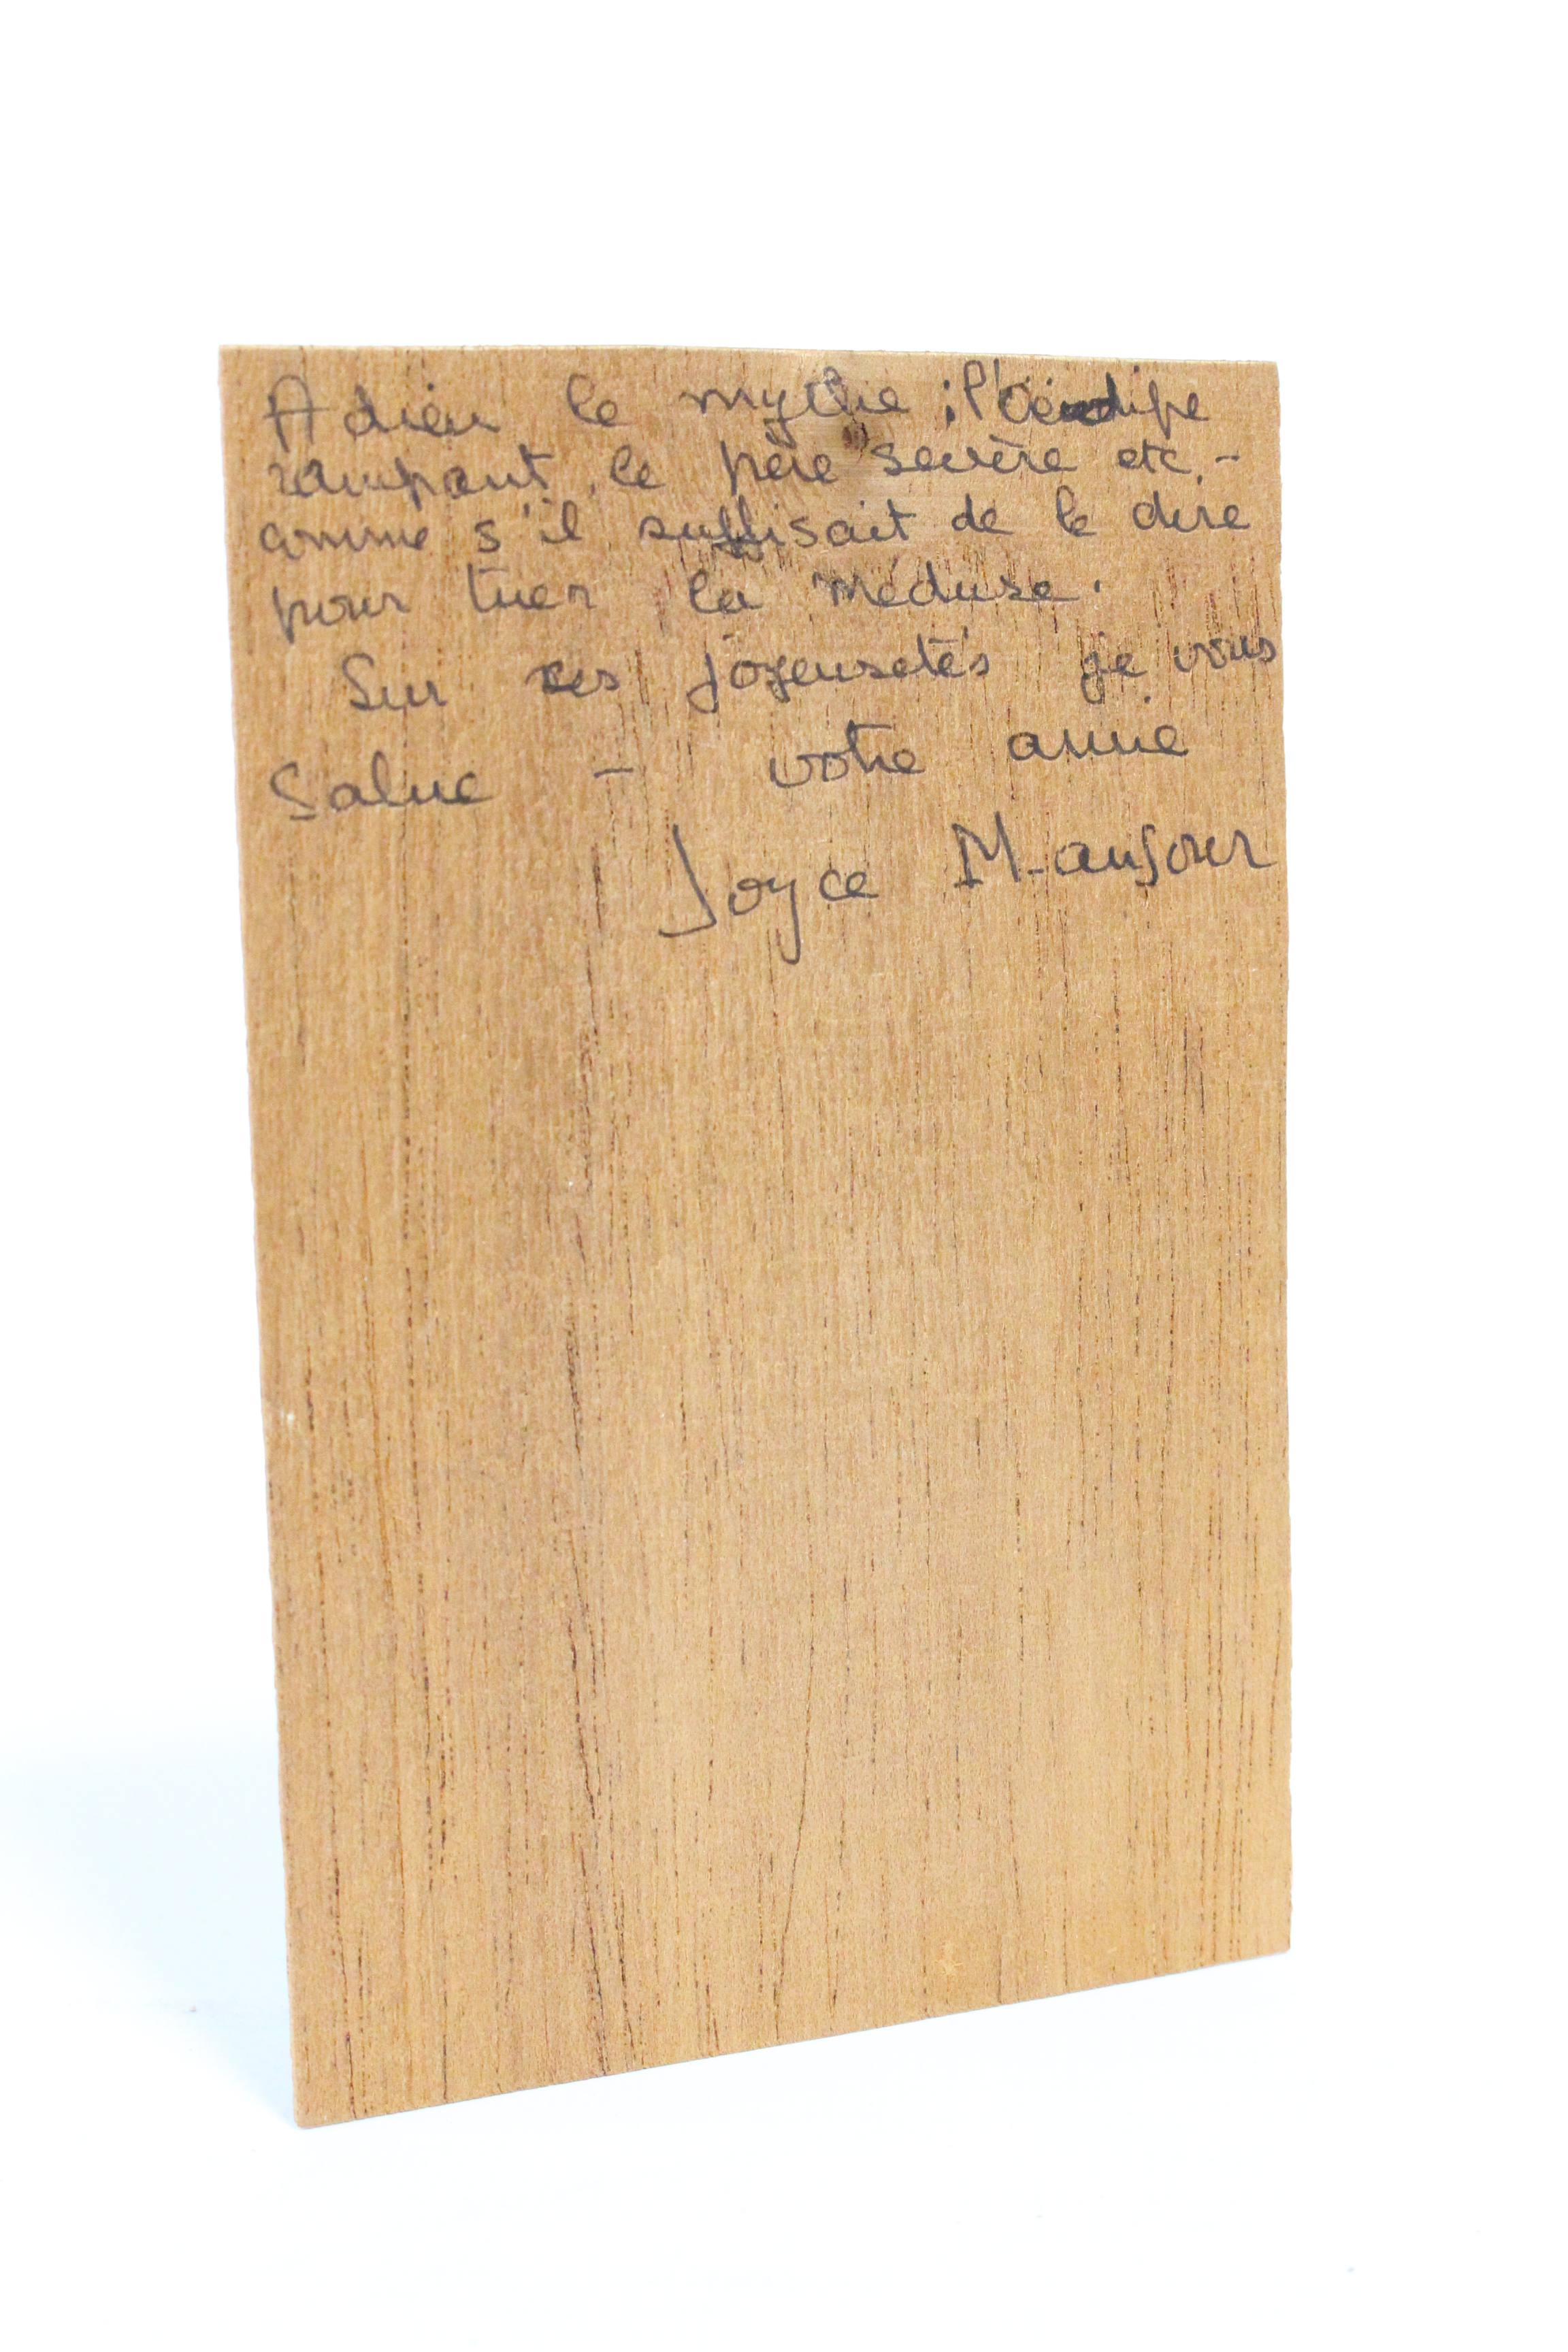 Adieu le mythe ; l'oedipe
rampant, le père sevère etc. -
comme s'il suffisait de le dire
pour tuer la méduse.
Sur ces joyeusetés je vous
Salue - votre amie
Joyce Mansour